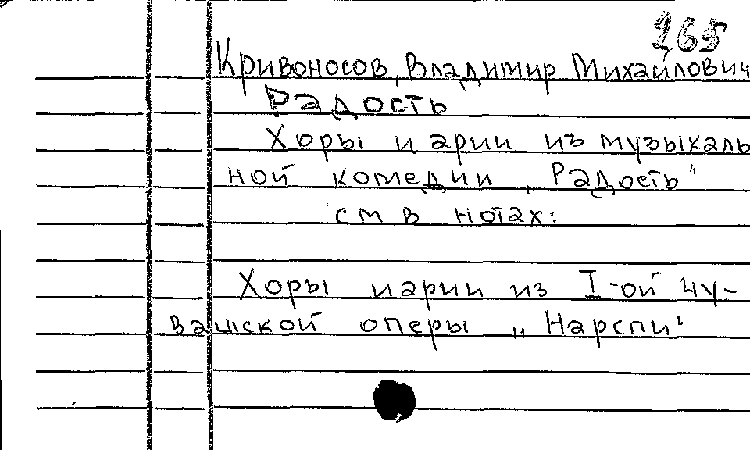 265
Кривоносов, Владимир Михайлович
Радость
Хоры и арии из музыкаль
ной комедии „Радость"
см в нотах:
Хоры и арии из I-ой чу-
вашской оперы „Нарспи"